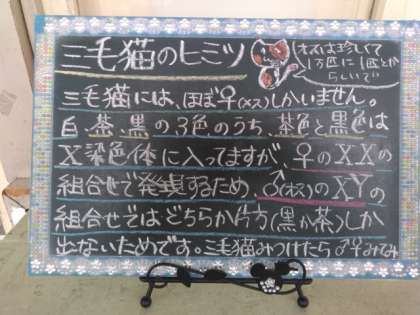 三毛猫のヒミツ
オスは珍しくて
1万匹に1匹とか
らしいで
三毛猫には、ほぼ♀(メス)しかいません。
白、茶、黒の3色のうち、茶色と黒色は
X染色体に入ってますが、♀のXXの
組合せで発現するため、♂(オス)のXYの
組合せではどちらか片方(黒か茶)しか
出ないためです。三毛猫みつけたら♂♀みてみ